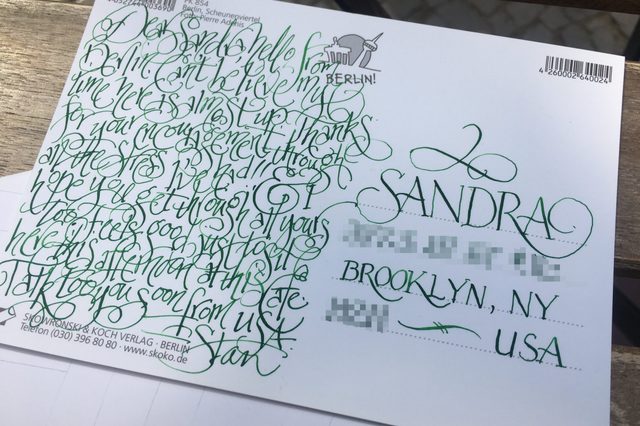 PK 854
Berlin, Scheunenviertel
Foto: Pierre Adenis
Dear Sandra, hello from
Berlin. Can't believe my
time here is almost up. Thanks
for your encouragement through
all the stress I've had recently
& I
hope you get through all yours
too. Feels good just to sit
here this afternoon at this cafe.
Talk to you soon from USA.
Stan
SKOWRONSKI & KOCH VERLAG · BERLIN
Telefon (030) 396 80 80 · www.skoko.de
BERLIN!
4 260002 640024
SANDRA
BROOKLYN, NY
USA